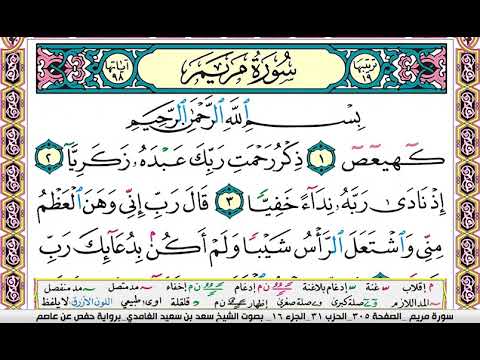 ترتيبها ١٩ سُورَةُ مَرْيَمَ آياتها ٩٨
بِسْمِ ٱللَّهِ ٱلرَّحْمَٰنِ ٱلرَّحِيمِ
كٓهيعٓصٓ ١ ذِكْرُ رَحْمَتِ رَبِّكَ عَبْدَهُۥ زَكَرِيَّآ ٢
إِذْ نَادَىٰ رَبَّهُۥ نِدَآءً خَفِيًّا ٣ قَالَ رَبِّ إِنِّي وَهَنَ ٱلْعَظْمُ
مِنِّي وَٱشْتَعَلَ ٱلرَّأْسُ شَيْبًا وَلَمْ أَكُنۢ بِدُعَآئِكَ رَبِّ
م إقلاب غنة إدغام بلاغنة ن م إدغام ن م إخفاء مد متصل مد منفصل
المد اللازم صلة كبرى صلة صغرى إظهار ن م قلقلة اوى طبيعي اللون الأزرق لا يلفظ
سورة مريم _الصفحة ٣٠٥_ الحزب ٣١_ الجزء ١٦_ بصوت الشيخ سعد بن سعيد الغامدي_ برواية حفص عن عاصم